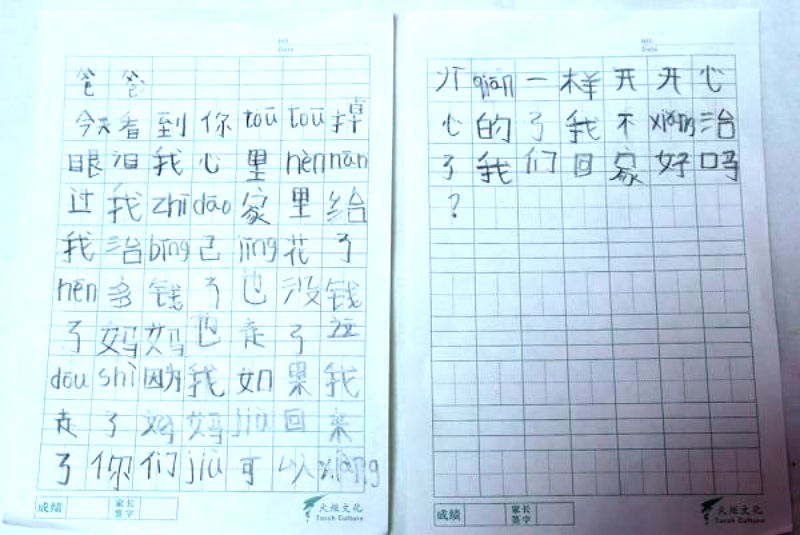 爸爸
今天看到你toū toū掉
眼泪我心里hěn nán
过我zhī dào家里给
我治bìng己jīng花了
hěn多钱了也没钱
了妈妈也走了这
dōu shì因为我如果我
走了妈妈jiù回来
了你们jiù可以xiàng
以qián一样开开心
心的了我不xiǎng治
了我们回家好吗
?
No.
Date
No.
Date
成绩
家长
签字
火炬文化
Torch Culture
成绩
家长
签字
火炬文化
Torch Culture